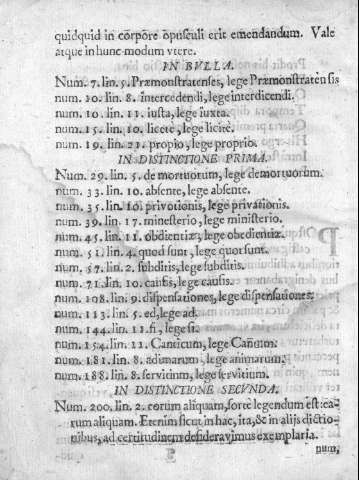 quidquid in corpore opusculi erit emendandum. Vale
atque in hunc modum vtere.
IN BVLLA.
Num. 7. lin. 5. Præmonstratenses, lege Præmonstratensis
num. 10. lin. 8. intercedendi, lege interdicendi.
num. 10. lin. 11. iusta, lege iuxta.
num. 15. lin. 10. licere, lege licitè.
num. 19. lin. 21. propio, lege proprio.
IN DISTINCTIONE PRIMA.
Num. 29. lin. 5. de mortuorum, lege demortuorum.
num. 33. lin. 10. absente, lege absente.
num. 35. lin. 10. privotionis, lege privationis.
num. 39. lin. 17. minesterio, lege ministerio.
num. 45. lin. 11. obdientiæ, lege obedientiæ.
num. 51. lin. 4. quod sunt, lege quot sunt.
num. 57. lin. 2. subditis, lege subditis.
num. 71. lin. 10. lege causis.
num. 108. lin. 9. dispensationes, lege dispensationes.
num. 113. lin. 5. ed, lege ad.
num. 144. lin. 11. fi, lege si.
num. 154. lin. 11. Canticum, lege
num. 181. lin. 8. lege animarum.
num. 188. lin. 8. servicium, lege servitium.
IN DISTINCTIONE SECVNDA.
Num. 200. lin. 2. eorum aliquam, fortè legendum est: ea-
rum aliquam. Etenim sicut in hac, ita, & in alijs dictio-
nibus, ad certitudinem desideravimus exemplaria.
num.